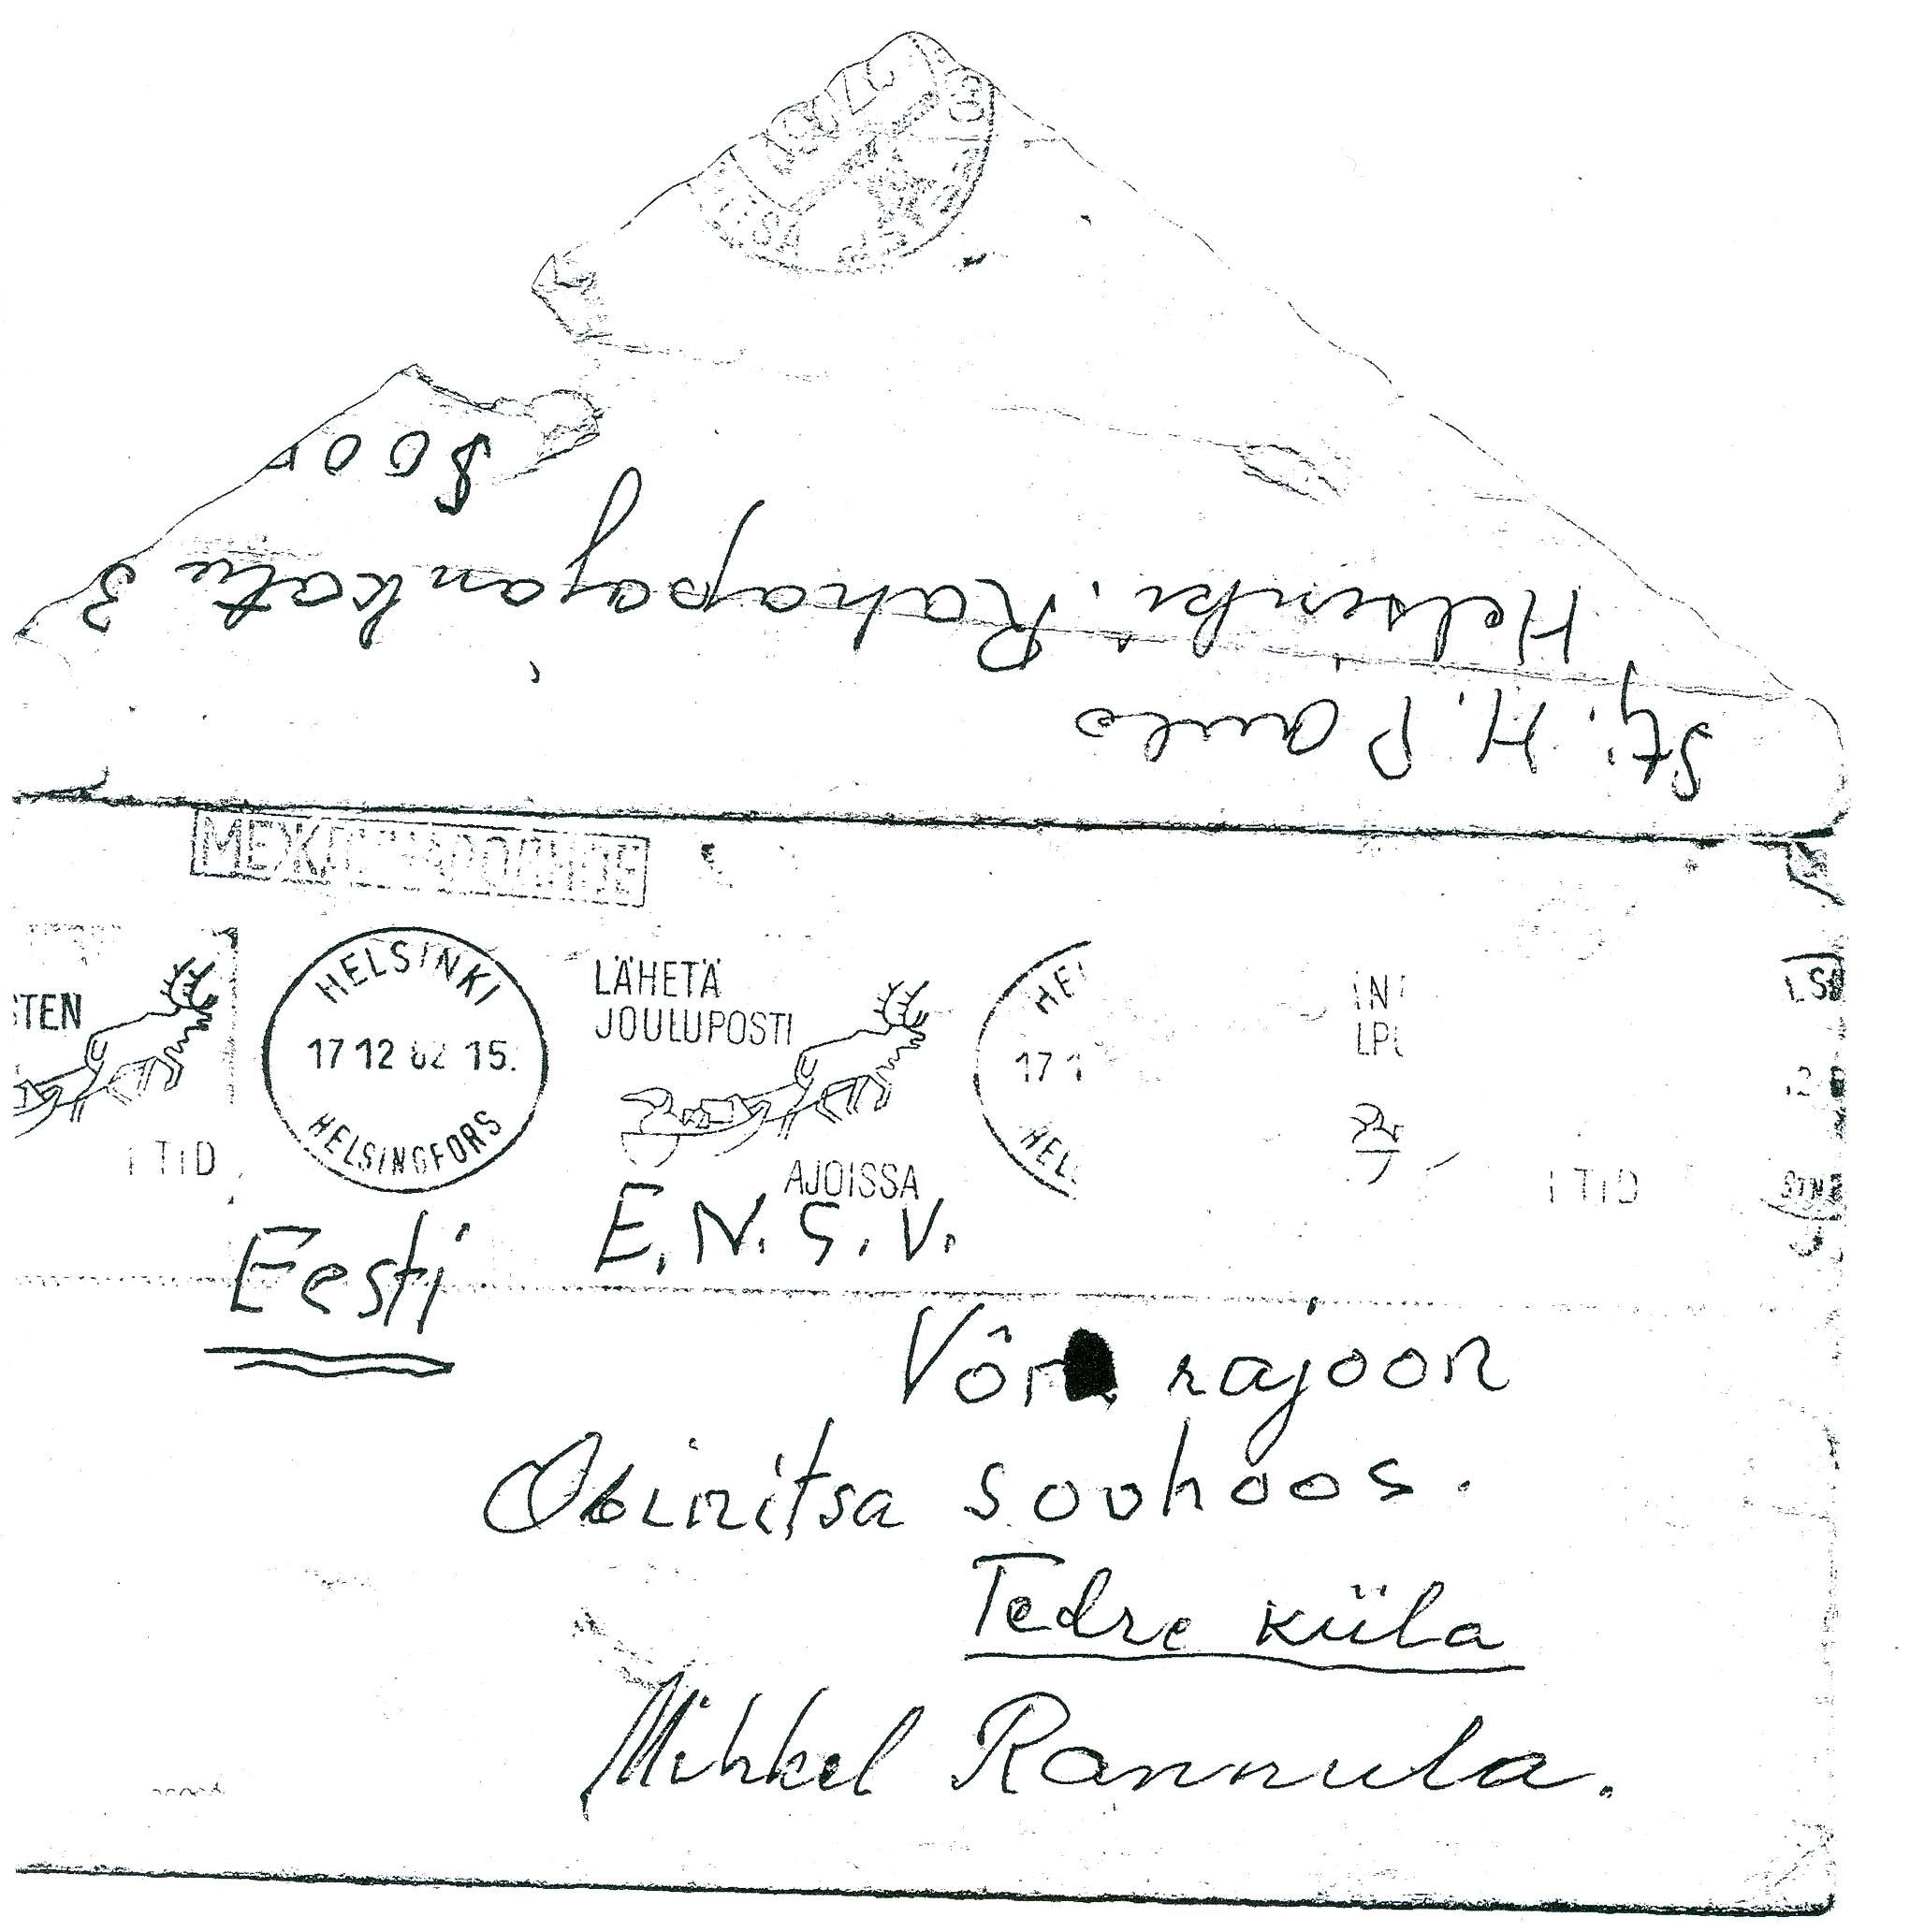 Sti. H. Paulo
Helsinki. Rahapajankatu 3
SOO
STEN
I TID
HELSINKI
17 12 62 15.
HELSINGFORS
LÄHETÄ
JOULUPOSTI
AJOISSA
HEL
17 1
HEL
I TID
Eesti
E. N. S. V.
Võr rajoon
Obinitsa sovhoos.
Tedre küla
Mihkel Rannula.